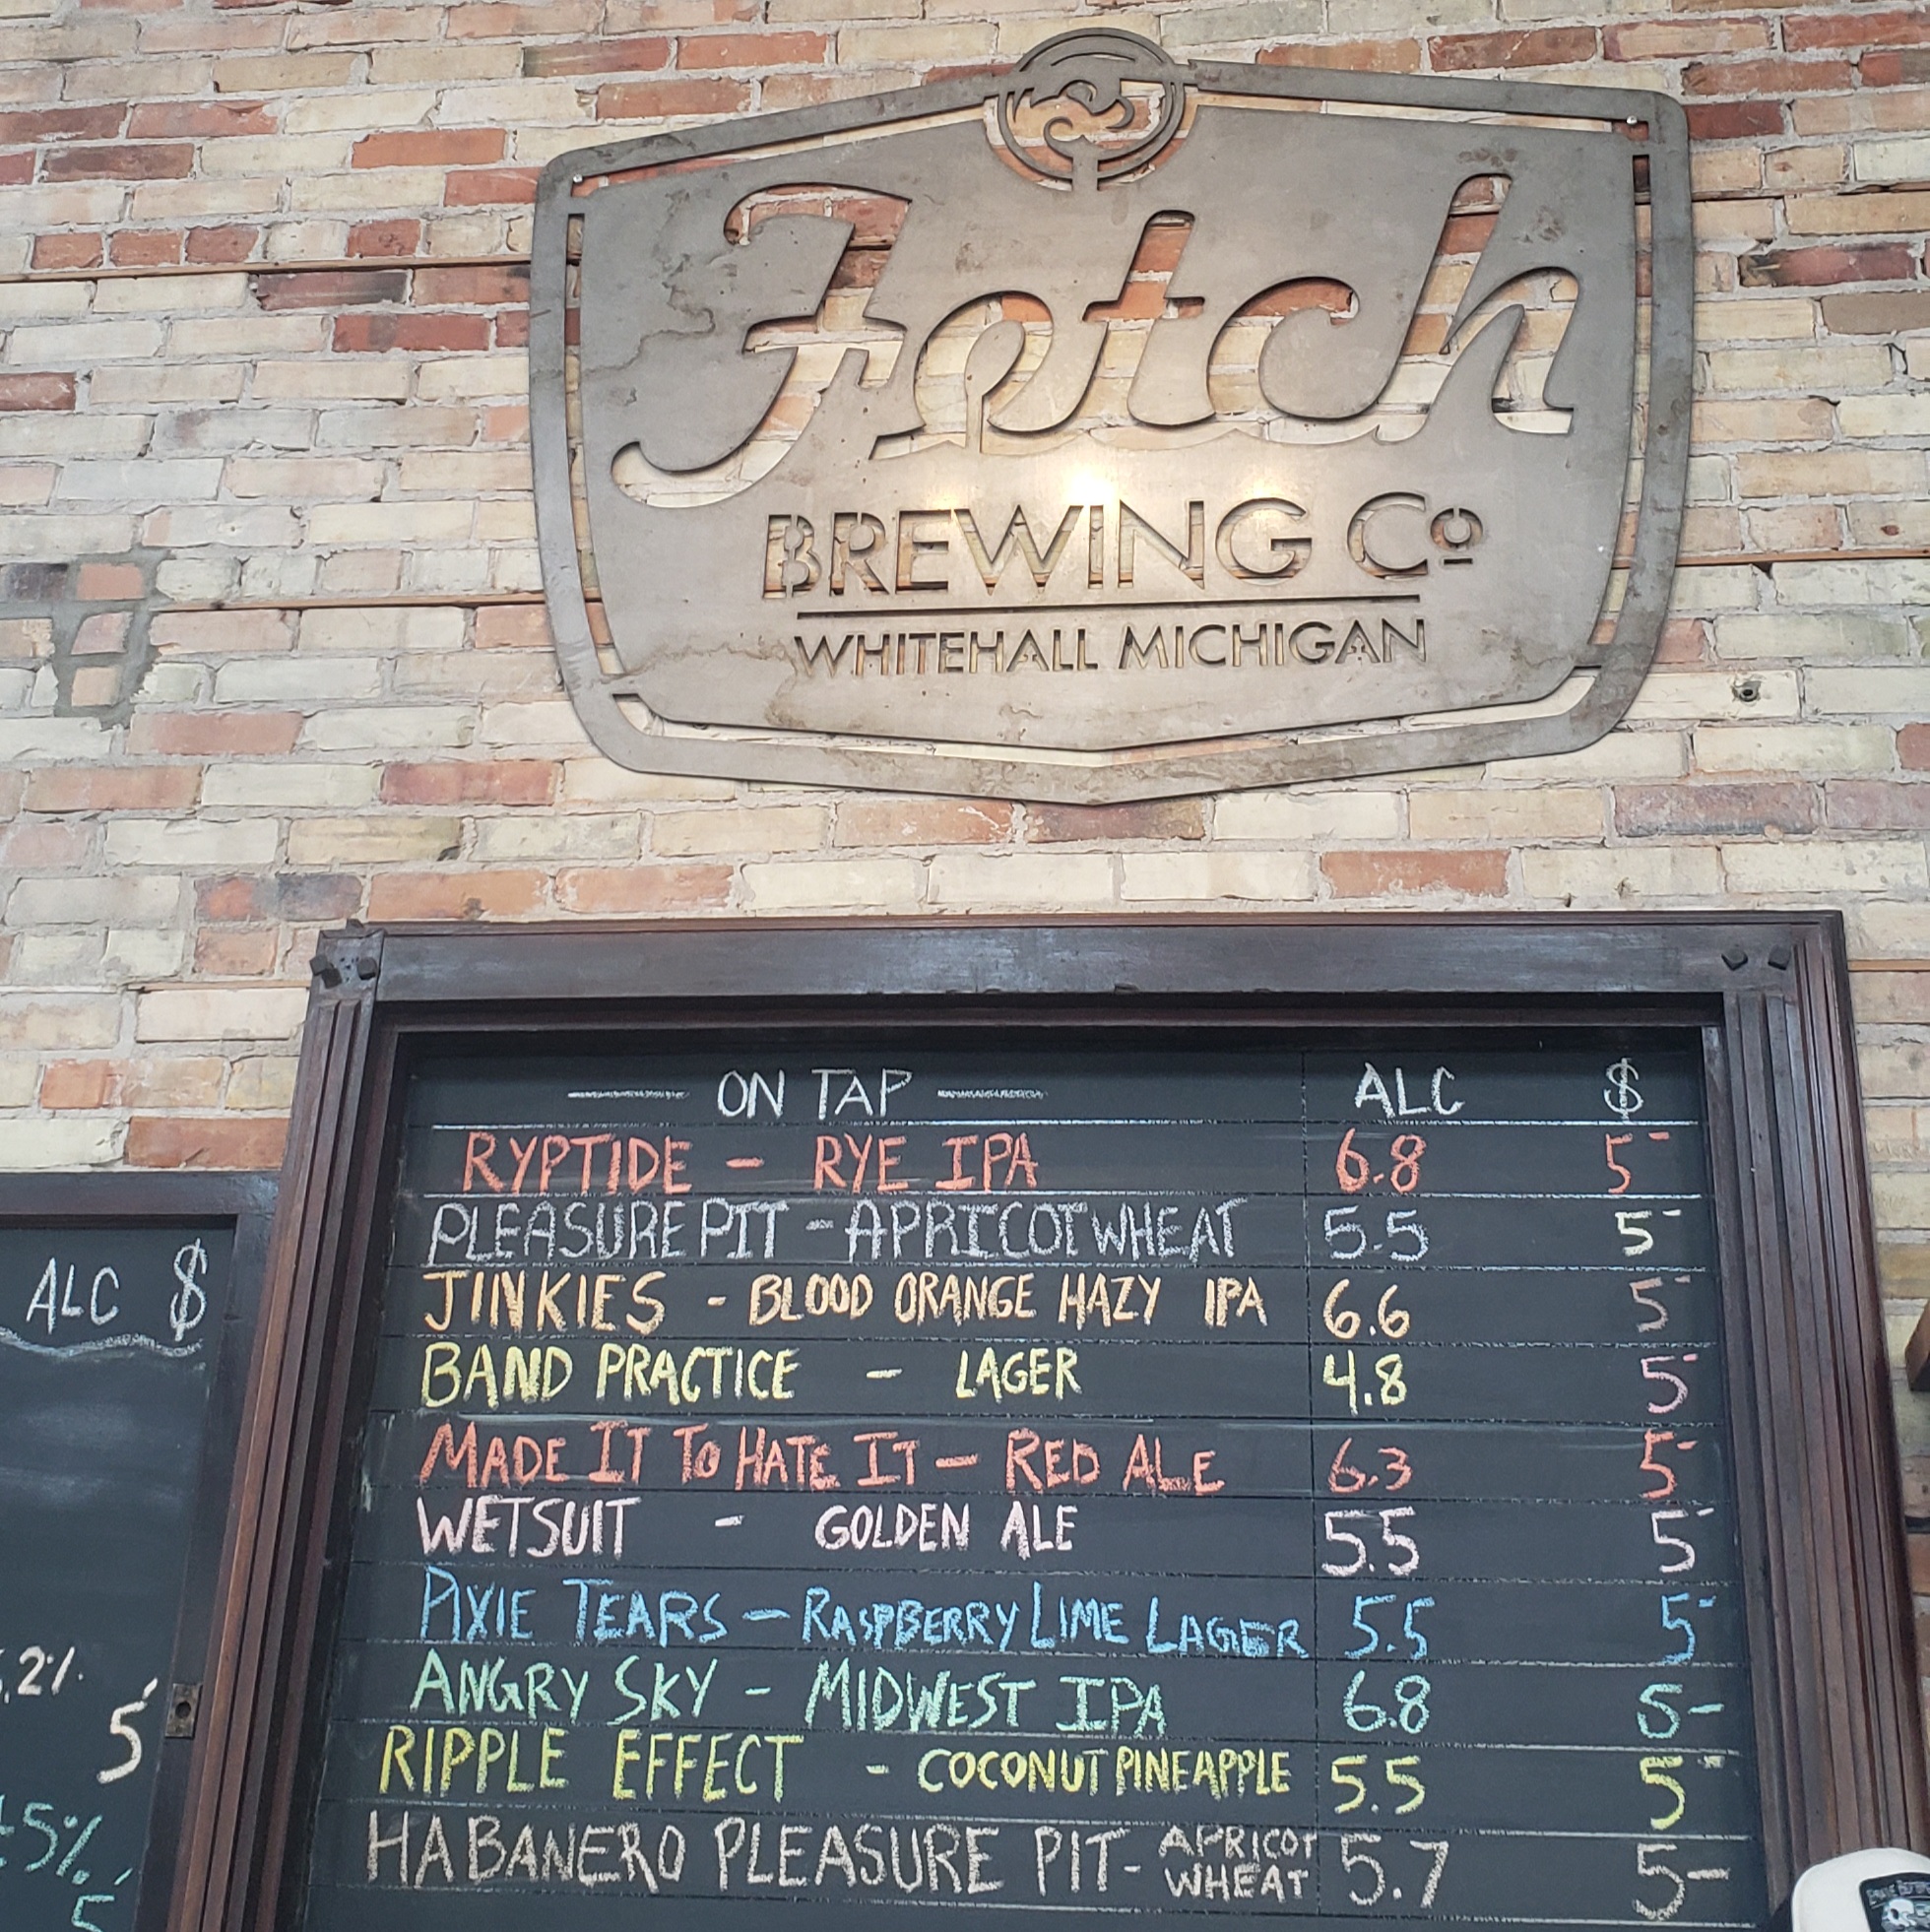 Fetch
BREWING Co
WHITEHALL MICHIGAN
ON TAP ALC $
RYPTIDE - RYE IPA 6.8 5-
PLEASURE PIT - APRICOT WHEAT 5.5 5-
JINKIES - BLOOD ORANGE HAZY IPA 6.6 5-
BAND PRACTICE - LAGER 4.8 5-
MADE IT TO HATE IT - RED ALE 6.3 5-
WETSUIT - GOLDEN ALE 5.5 5-
PIXIE TEARS - RASPBERRY LIME LAGER 5.5 5-
ANGRY SKY - MIDWEST IPA 6.8 5-
RIPPLE EFFECT - COCONUT PINEAPPLE 5.5 5-
HABANERO PLEASURE PIT - APRICOT WHEAT 5.7 5-
ALC $
.2%
5-
5%
5